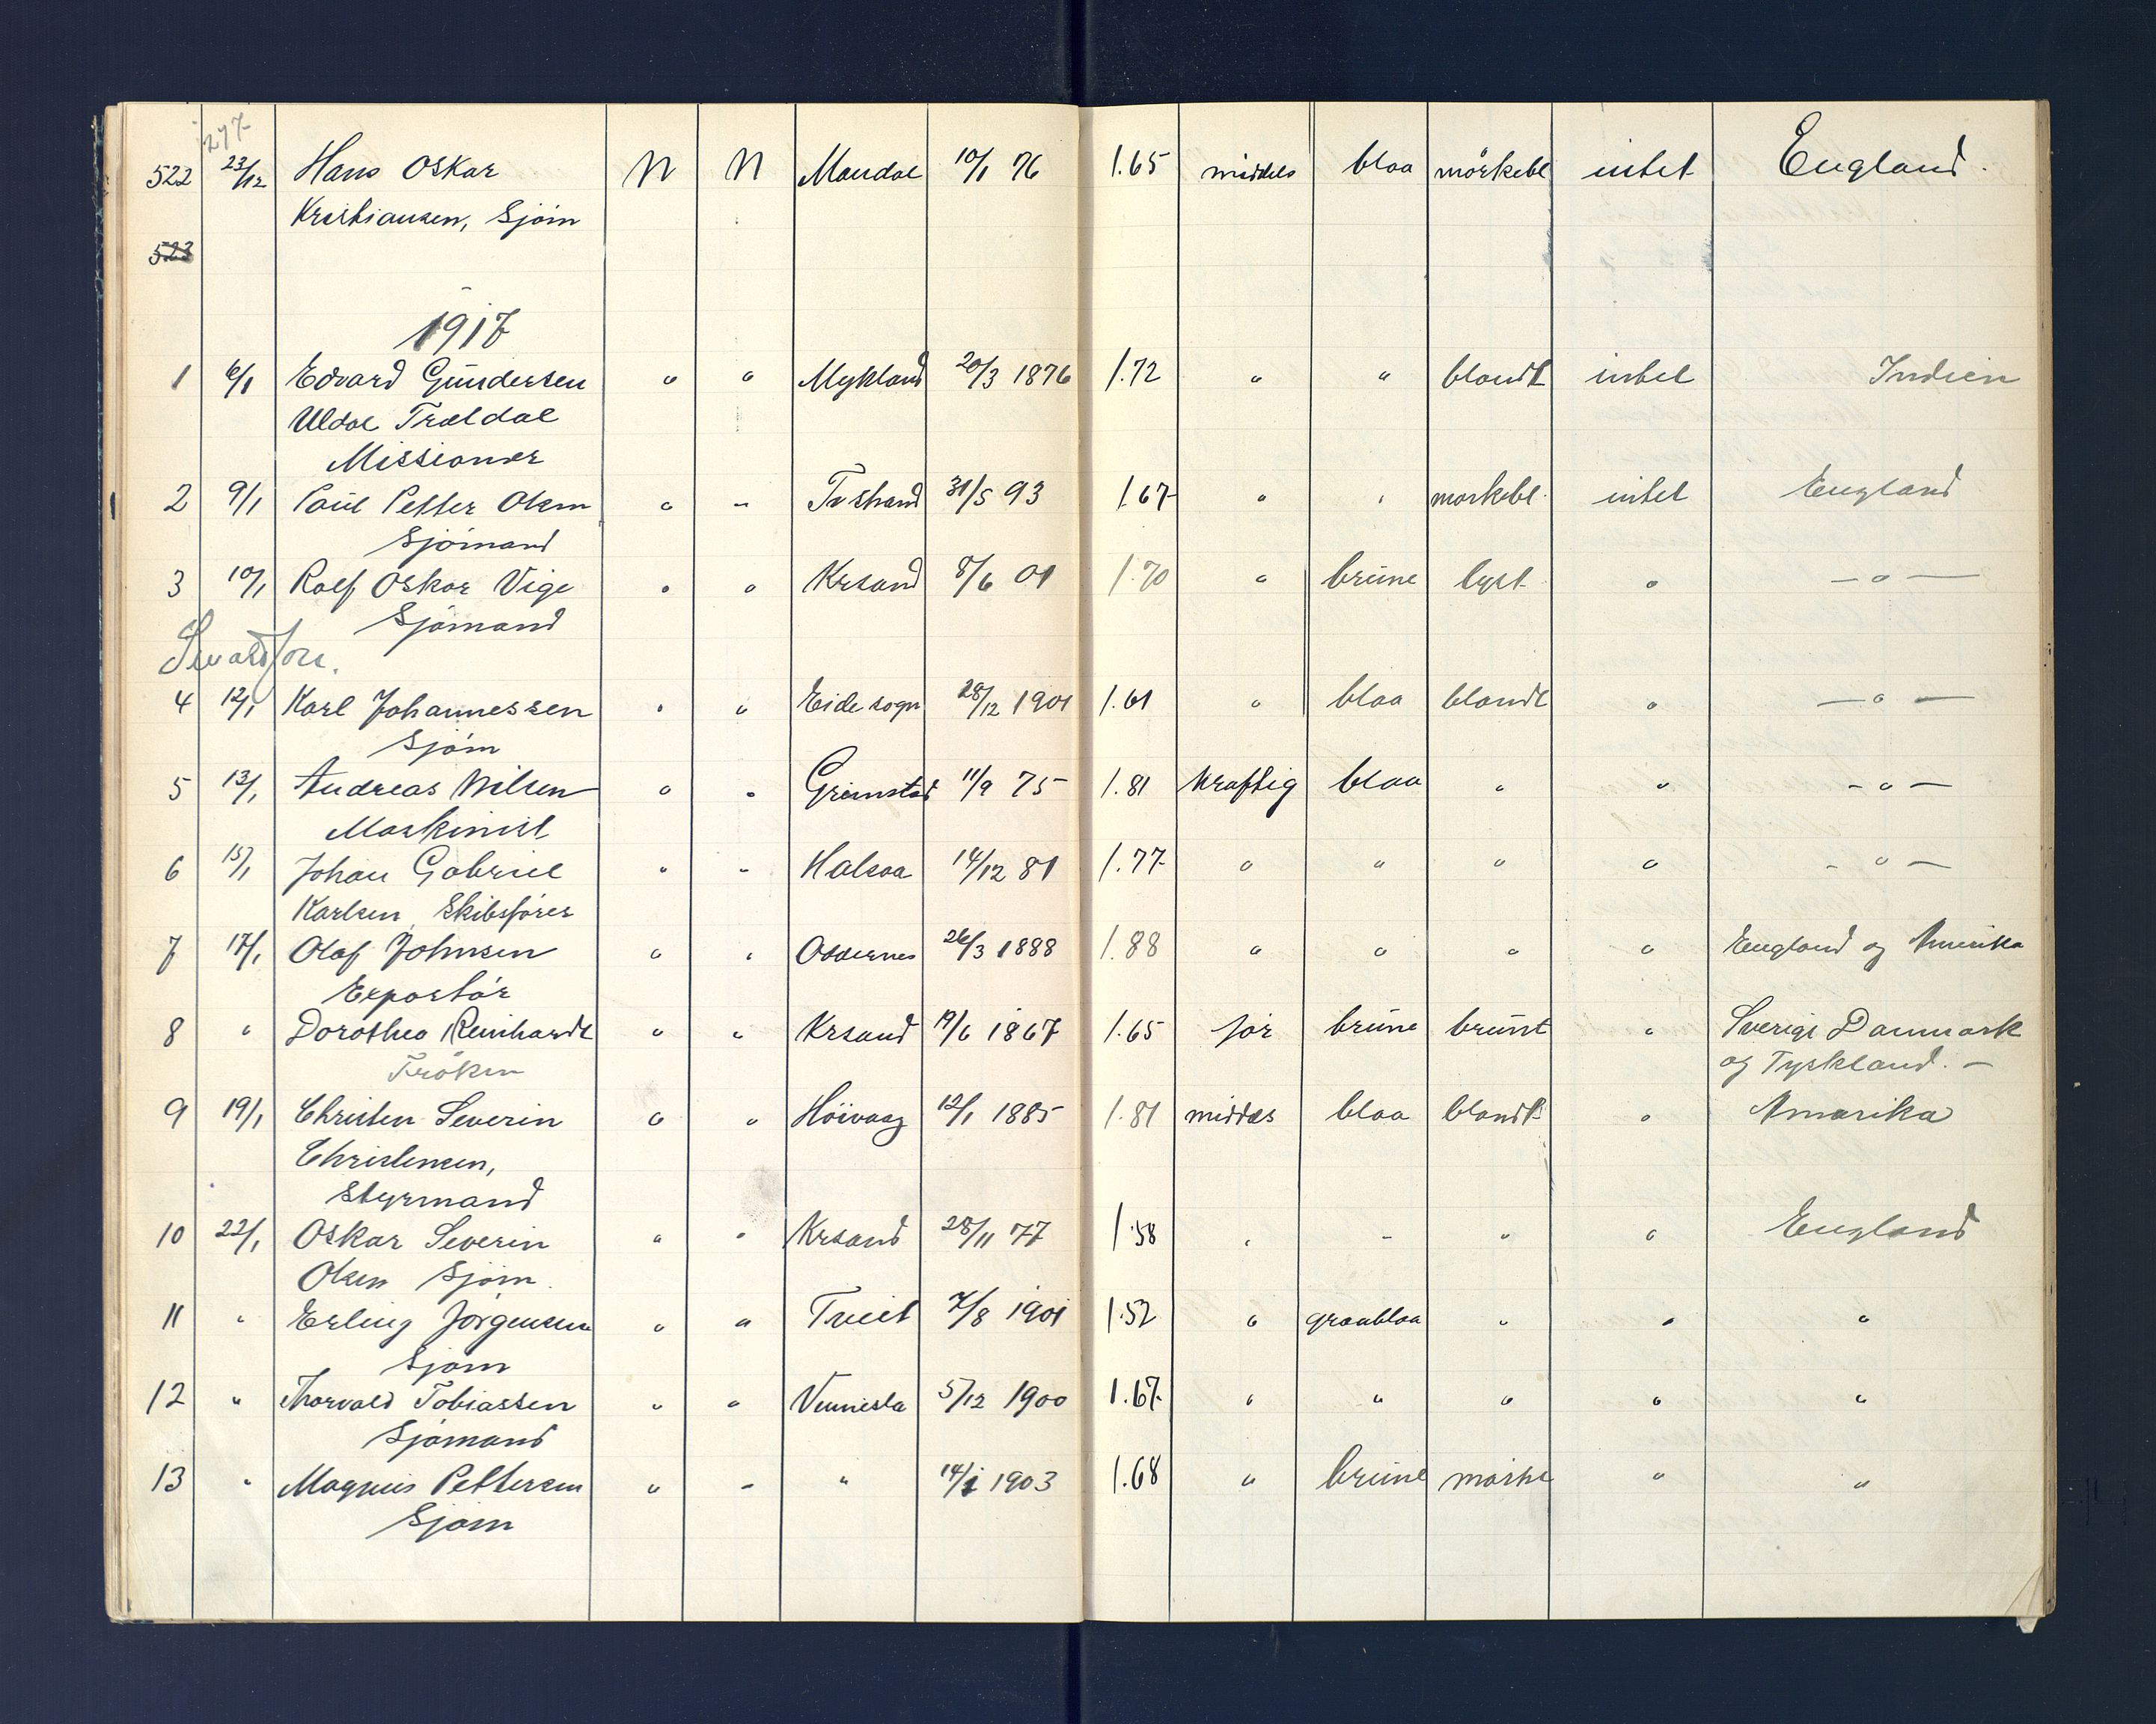 297
522 23/12 Hans Oskar N N Mandal 10/1 76 1.65 middels blaa mörkebl intet England.
Kristiansen, Sjöm
523
1917
1 6/1 Edvard Gundersen " " Mykland 20/3 1876 1.72 " " blondt intet Indien
Uldal Trældal
Missionær
2 9/1 Paul Petter Olsen " " Tvstrand 31/5 93 1.67 " " morkebl. intet England
Sjömand
3 10/1 Rolf Oskar Vige " " Krsand 8/6 01 1.70 " brune lyst " — " —
Sjömand
4 12/1 Karl Johannessen " " Eide sogn 28/12 1901 1.61 " blaa blondt " — " —
Sjöm
5 13/1 Andreas Nilsen " " Grimstad 11/9 75 1.81 kraftig blaa " " - " -
Maskinist
6 15/1 Johan Gabriel " " Halsaa 14/12 81 1.77 " " " " - " -
Karlsen, Skibsfører
7 17/1 Olaf Johnsen " " Oddernes 26/3 1888 1.88 " " " " England og Amerika
Exportör
8 " Dorothea Reinhardt " " Krsand 19/6 1867 1.65 før brune brunt " Sverige Danmark
Fröken og Tyskland. —
9 19/1 Christen Severin " " Höivaag 12/1 1885 1.81 middels blaa blondt " Amerika
Christensen,
Styrmand
10 22/1 Oskar Severin " " Krsand 28/11 77 1.58 " - " " England
Olsen Sjöm.
11 " Erling Jörgensen " " Tveit 7/8 1901 1.52 " graablaa " " "
Sjöm
12 " Thorvald Tobiassen " " Vennesla 5/12 1900 1.67 " " " " "
Sjömand
13 " Magnus Pettersen " - " 14/1 1903 1.68 " brune mörke " "
Sjöm